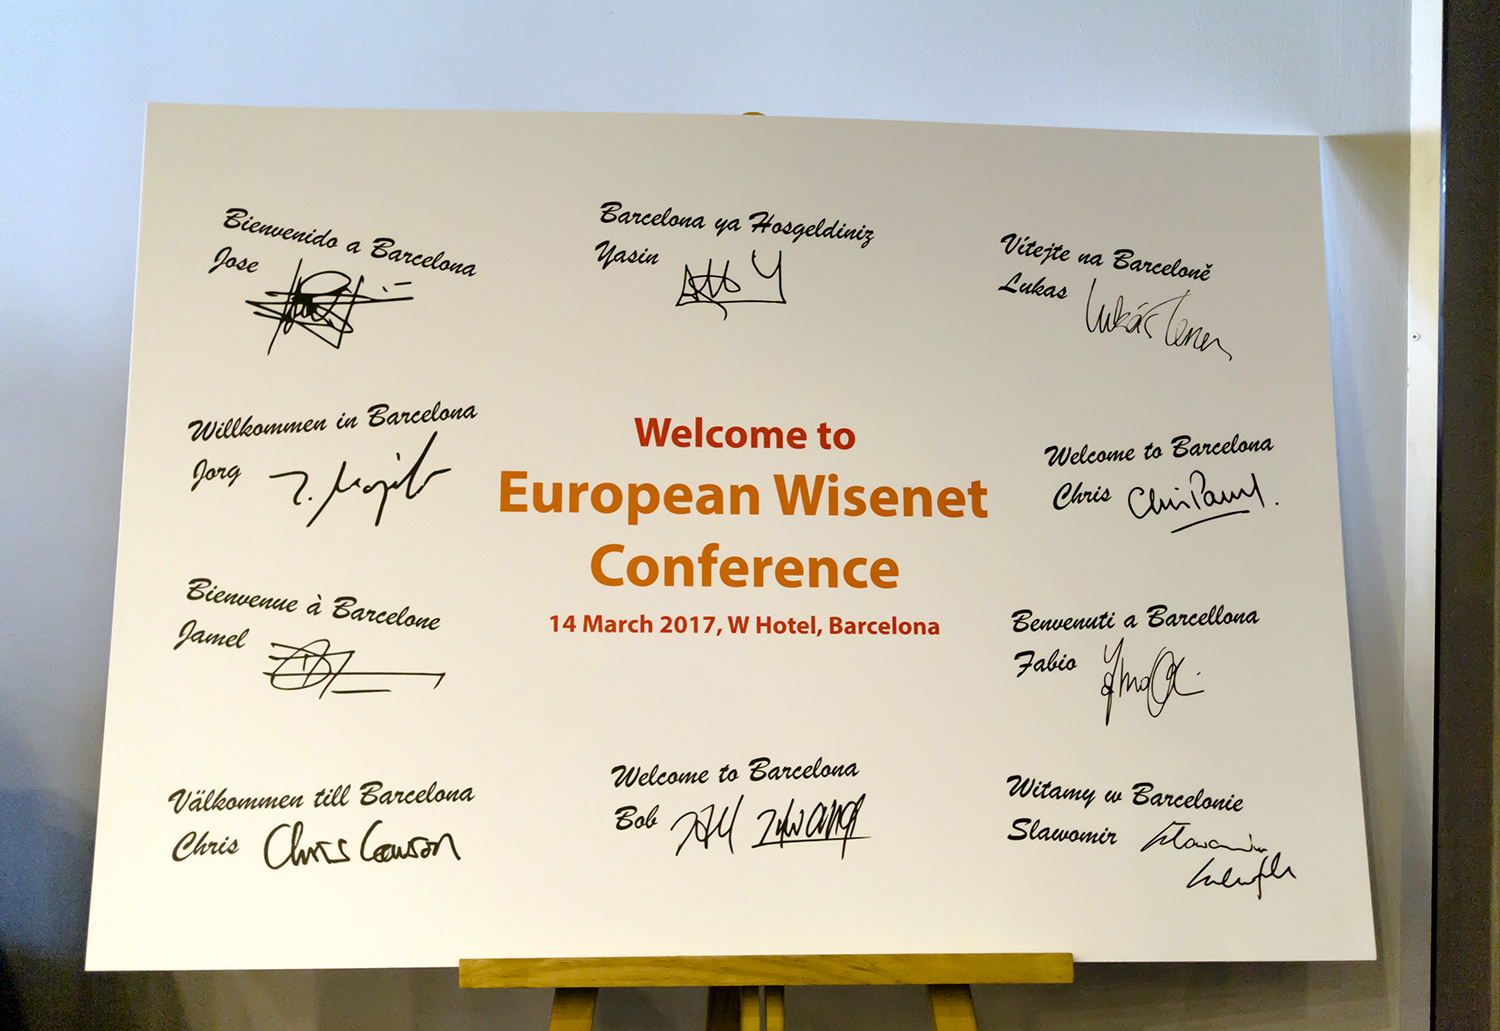 Bienvenido a Barcelona
Jose
Barcelona ya Hosgeldiniz
Yasin
Vítejte na Barceloně
Lukas
Willkommen in Barcelona
Jorg
Welcome to
European Wisenet
Conference
14 March 2017, W Hotel, Barcelona
Welcome to Barcelona
Chris
Bienvenue à Barcelone
Jamel
Benvenuti a Barcellona
Fabio
Välkommen till Barcelona
Chris
Welcome to Barcelona
Bob
Witamy w Barcelonie
Slawomir